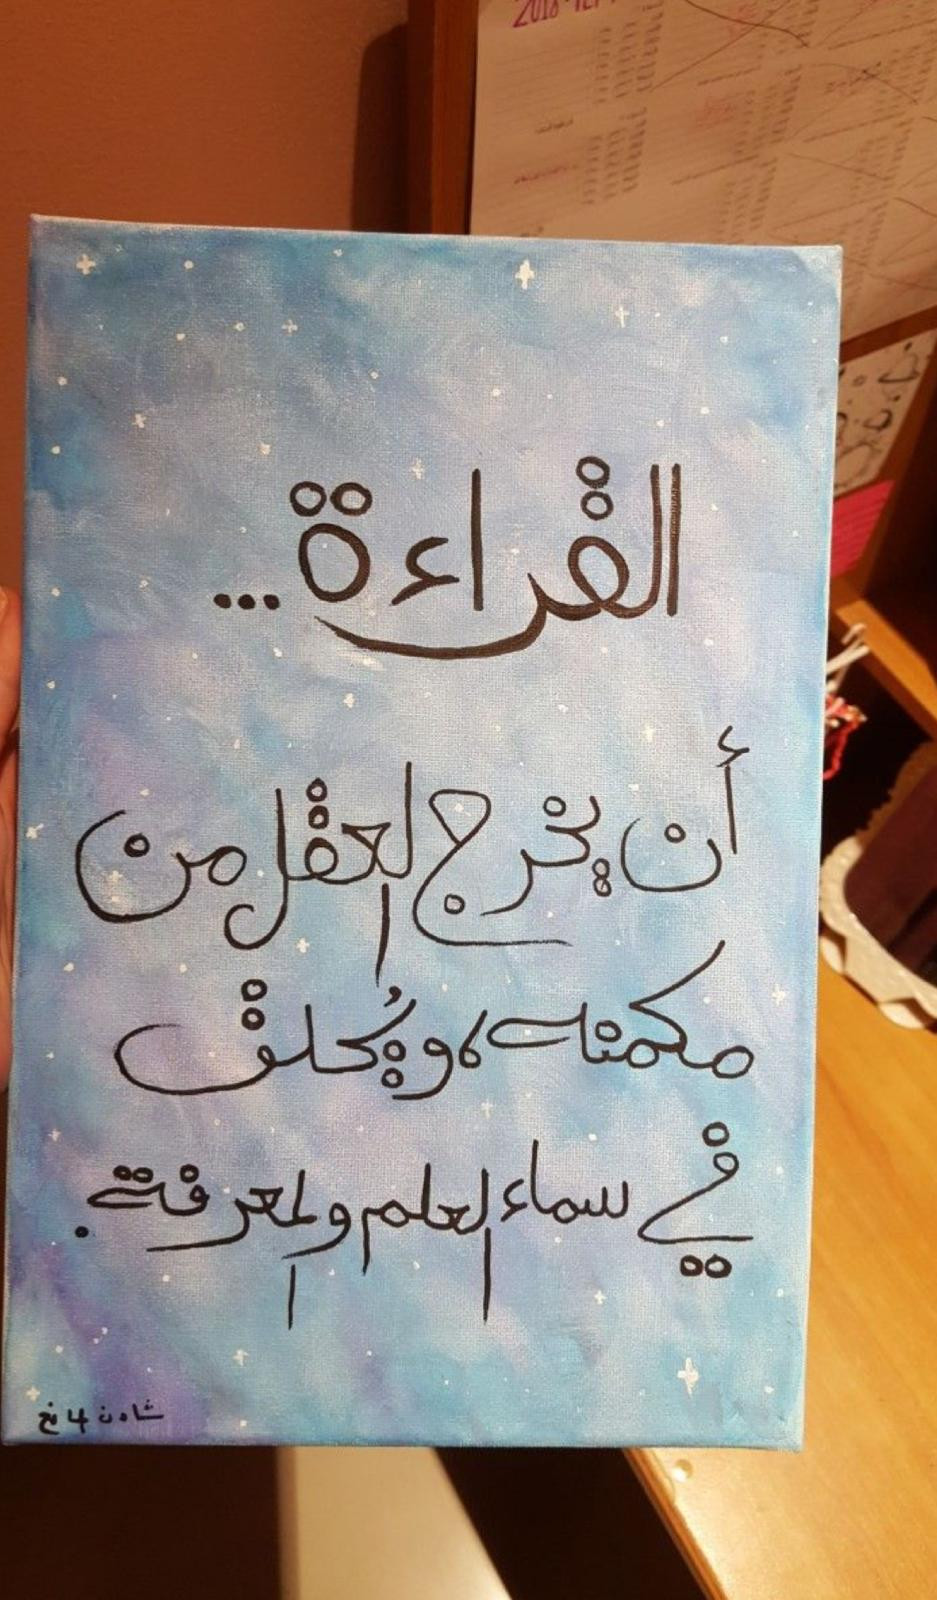 القراءة...
أن يخرج العقل من
مكمنه، ويُحلق
في سماء العلم والمعرفة.
2018